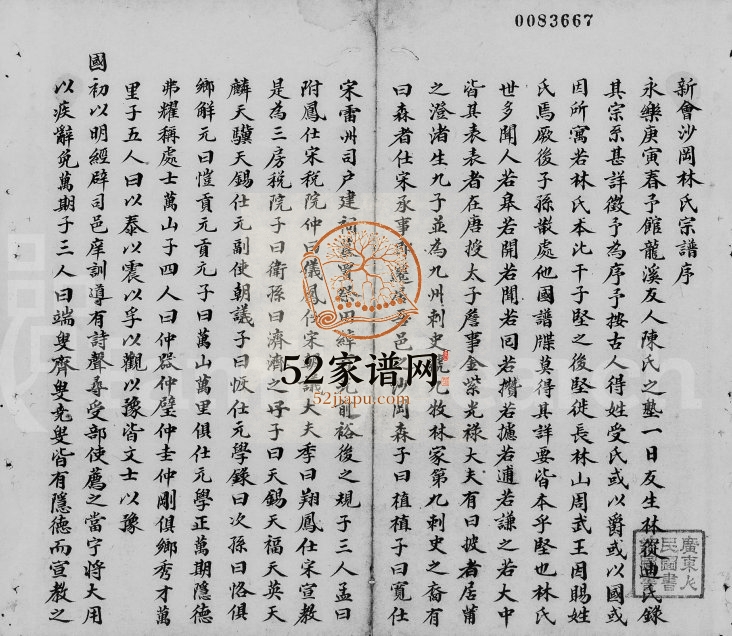 0083667
新會沙岡林氏宗譜序
永樂庚寅春予館龍溪友人陳氏之塾一日友生林從迪氏錄
其宗系甚詳徵予為序予按古人得姓受氏或以爵或以國或
因所寓若林氏本比干子堅之後堅從長林山周武王因賜姓
氏焉厥後子孫散處他國譜牒莫得其詳要皆本乎堅也林氏
世多聞人若皋若開若聞若同若攢若攄若遹若謙之若大中
皆其表表者在唐授太子詹事金紫光祿大夫有曰披者居莆
之澄渚生九子並為九州刺史號九牧林家第九刺史之裔有
曰森者仕宋承事郎 邑之沙岡森子曰植植子曰寬仕
宋雷州司戶建祠 祭田 前裕後之規子三人孟曰
附鳳仕宋稅院仲曰儀鳳仕宋 大夫季曰翔鳳仕宋宣教
是為三房稅院子曰衛孫曰濟濟之子子曰天錫天福天英天
麟天驥天錫仕元副使朝議子曰恢仕元學錄曰次孫曰恪俱
鄉解元曰愷貢元貢元子曰萬山萬里俱仕元學正萬期隱德
弗耀稱處士萬山子四人曰仲器仲璧仲圭仲剛俱鄉秀才萬
里子五人曰以泰以震以孚以觀以豫皆文士以豫
國初以明經辟司邑庠訓導有詩聲尋受部使薦之當宁將大用
以疾辭免萬期子三人曰端叟齊叟堯叟皆有隱德而宣教之
52家谱网
52jiapu.com
廣東人民圖書